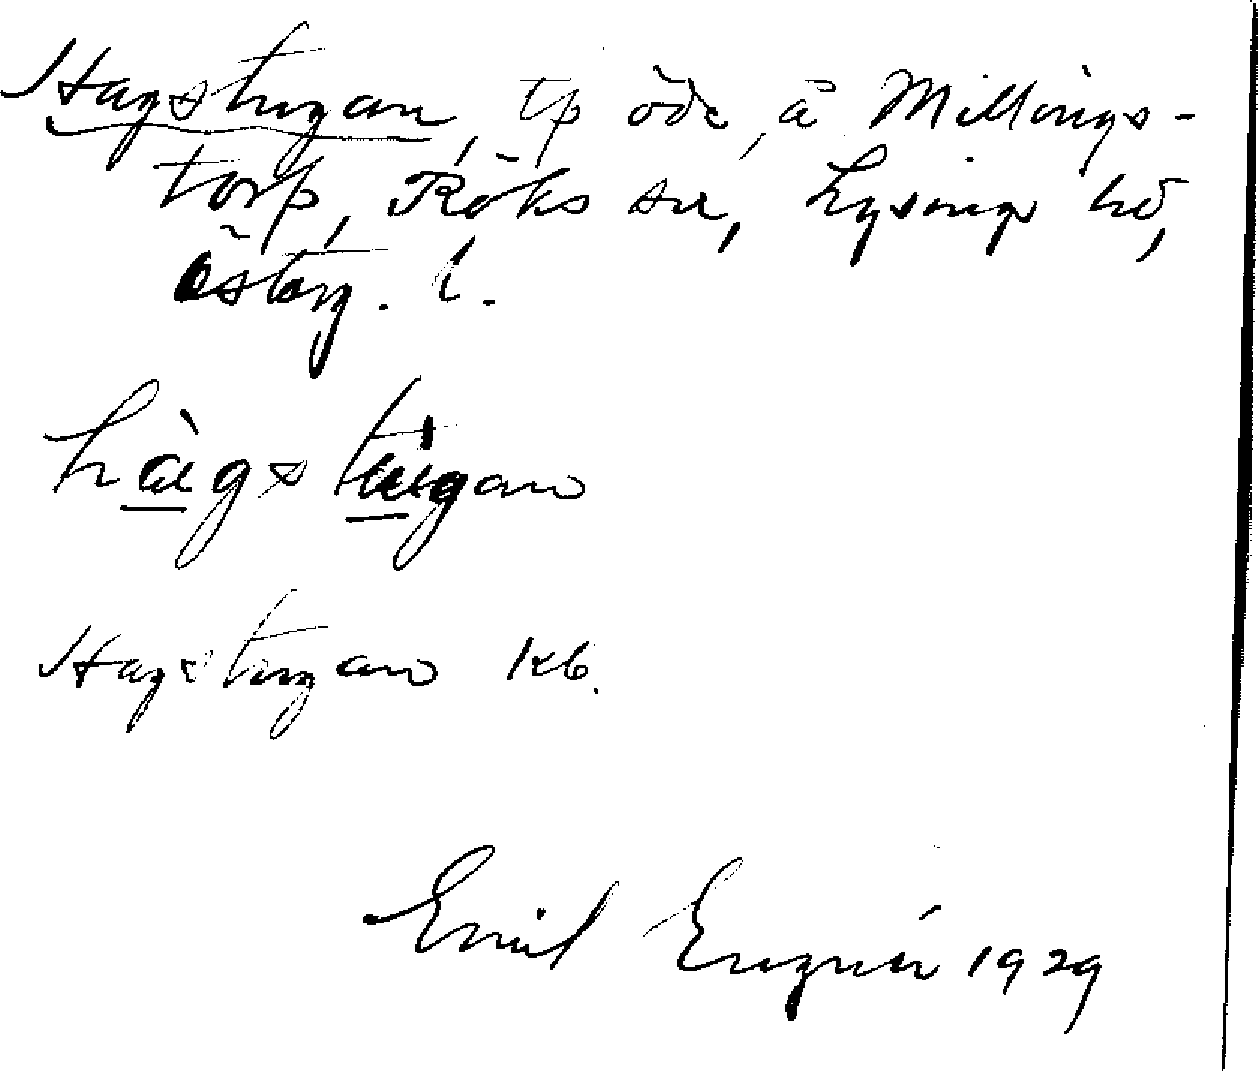 Hagstugan, tp öde, å Millings-
torp, Röks sn, Lysings hd,
Österg. l.
hàgstugan
Hagstugan kb.
Emil Engnér 1929